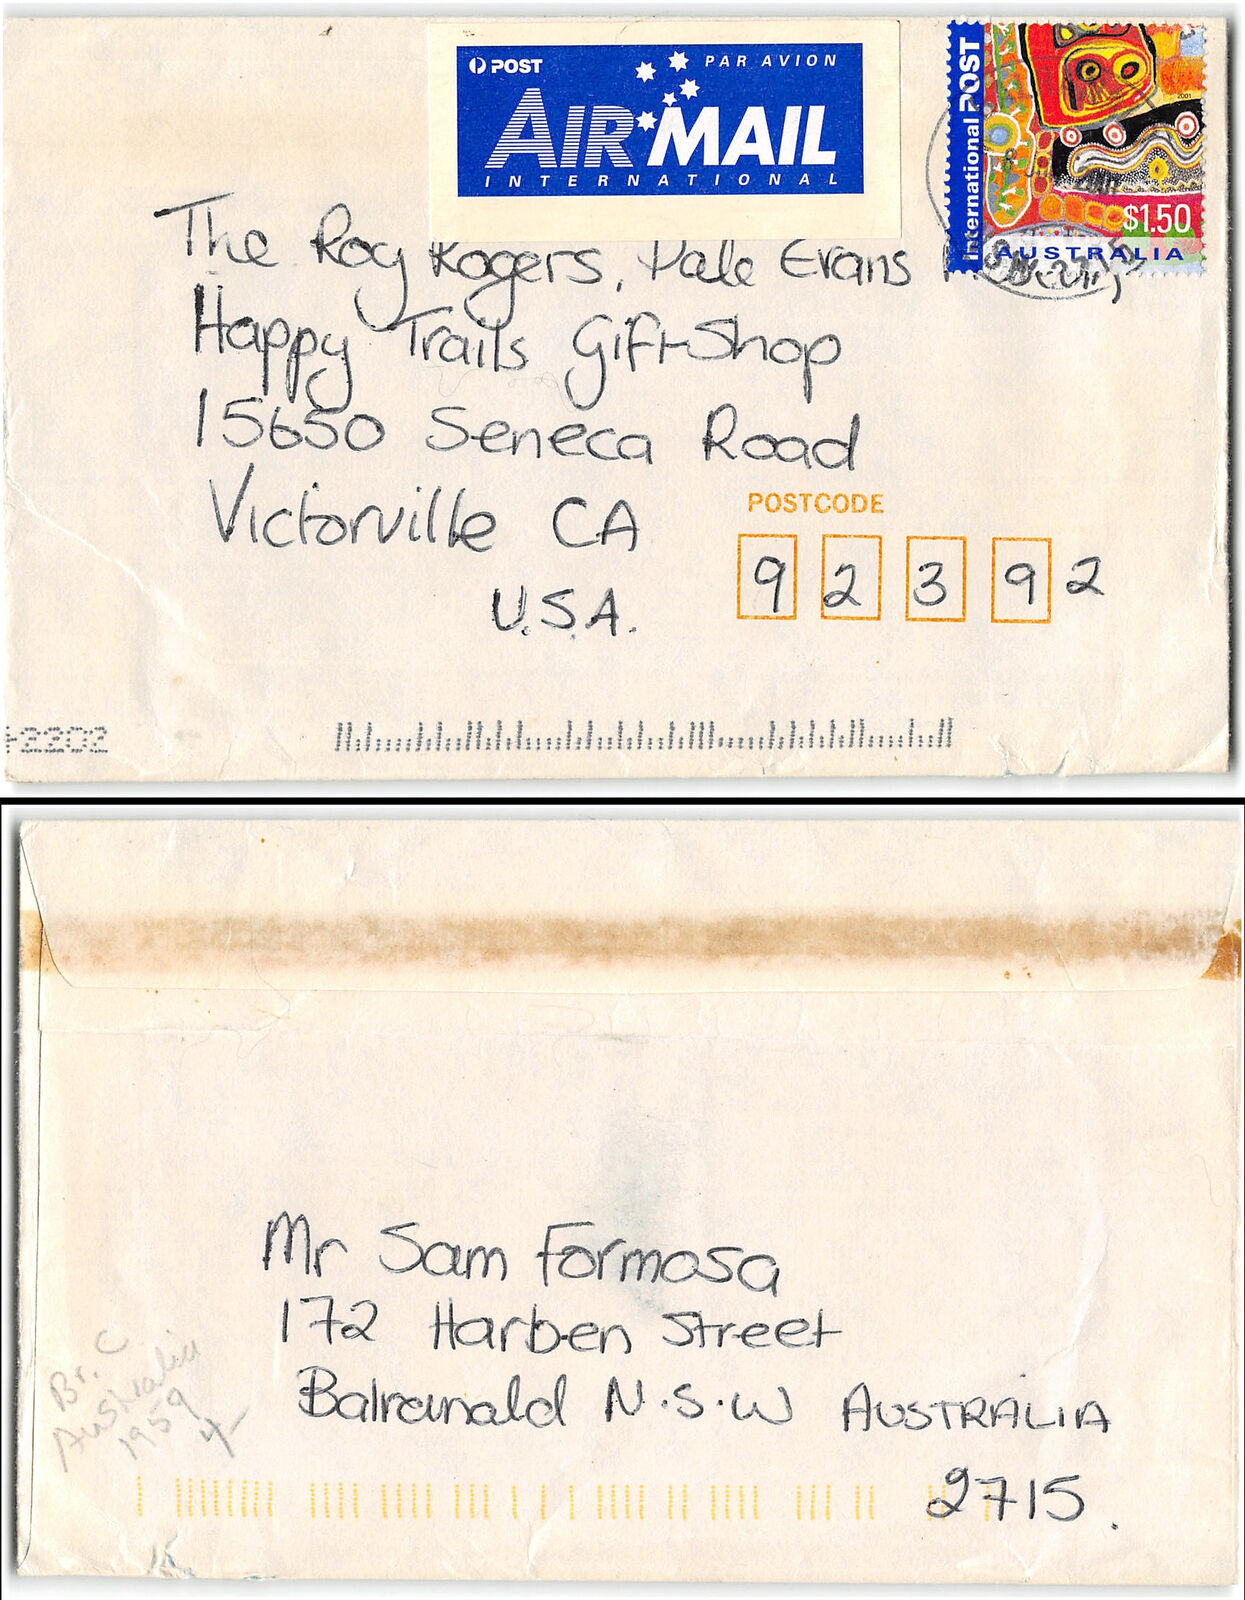 POST
PAR AVION
AIRMAIL
INTERNATIONAL
International POST
2001
$1.50
AUSTRALIA
The Roy Rogers, Dale Evans
Happy Trails Gift Shop
15650 Seneca Road
Victorville CA
U.S.A.
POSTCODE
9 2 3 9 2
2202
Mr Sam Formosa
172 Harben Street
Balranald N.S.W AUSTRALIA
2715.
Br. C
Australia
1959